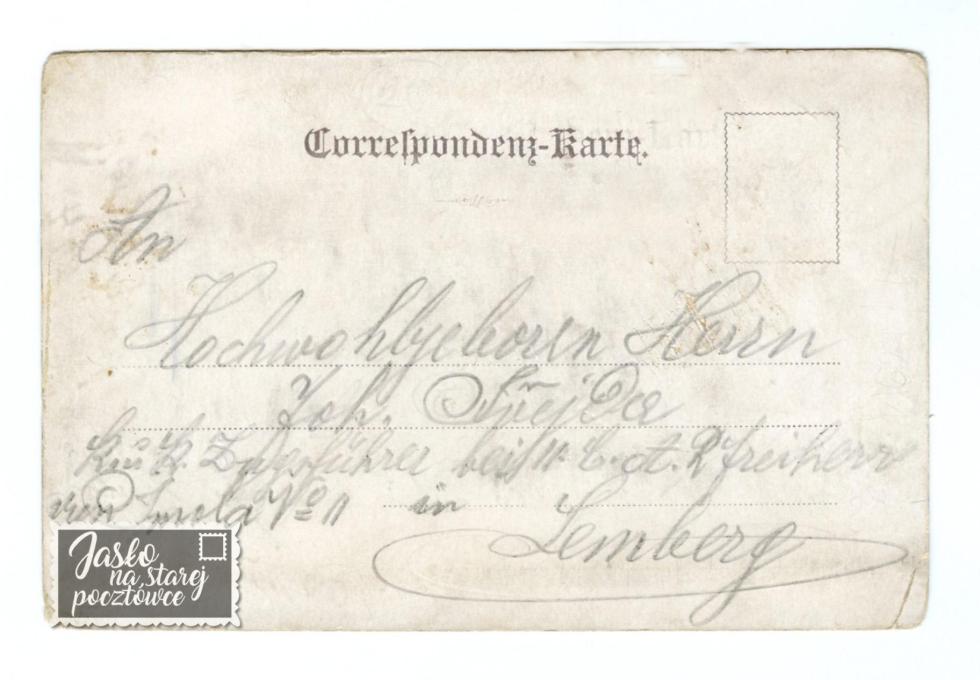 Correspondenz-Karte.
An
Hochwohlgeboren Herrn
Joh.
k. u. k. Zugsführer beim 11. C. A. R. Freiherr
von Smola No 11 in Lemberg
Jasło
na starej
pocztówce